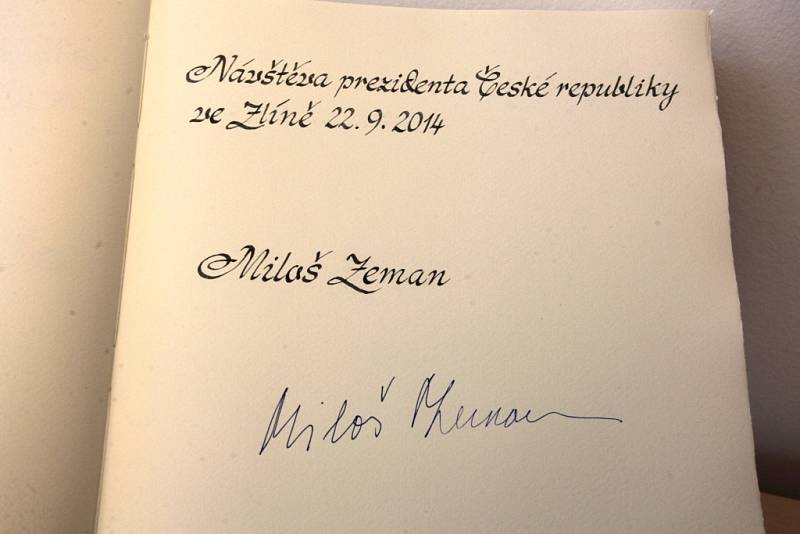 Návštěva prezidenta České republiky
ve Zlíně 22. 9. 2014
Miloš Zeman
Miloš Zeman